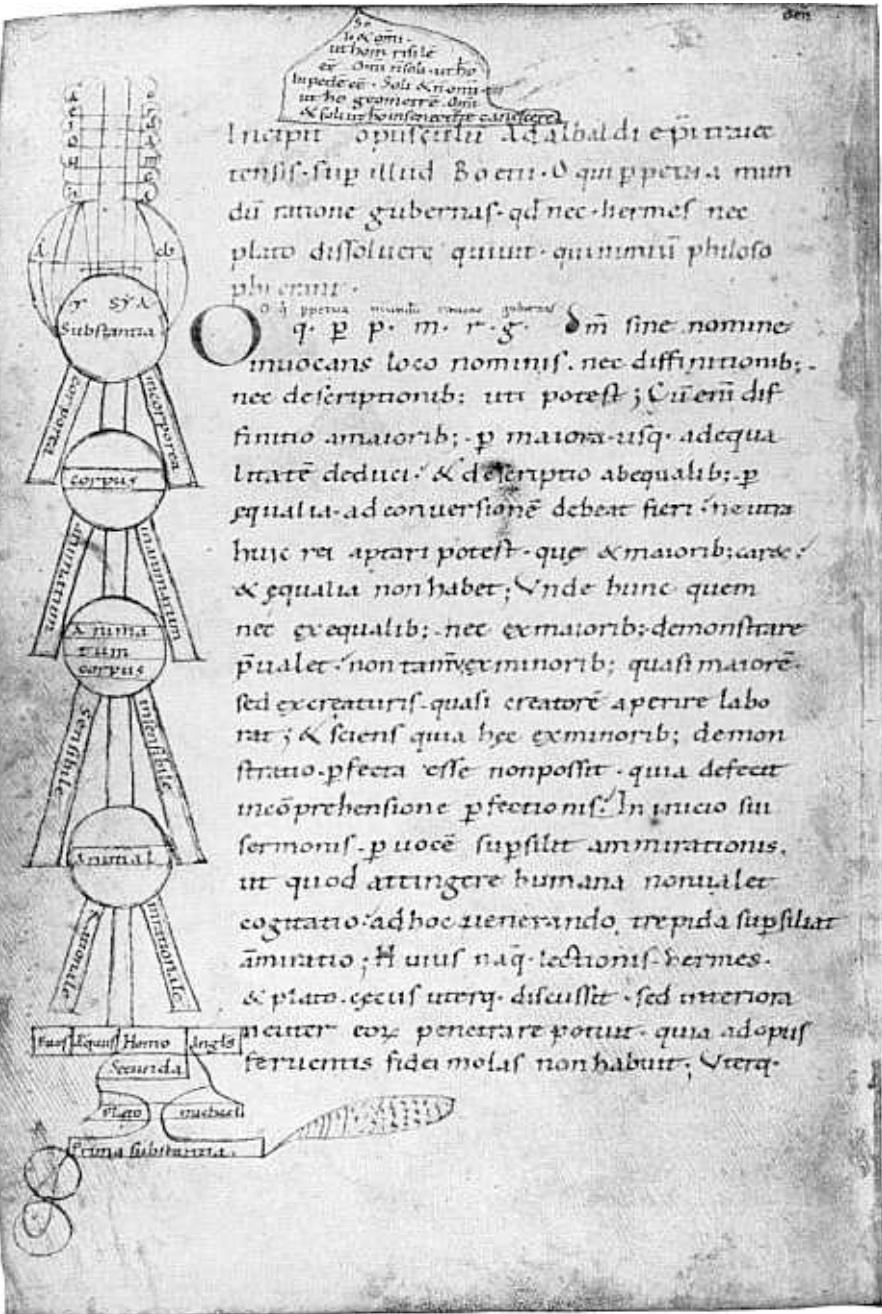 So
li & omī·
ut hom risile
ē· Omī n̄soli· ut hō
bipedē eē· Soli & n̄omī
ut hō geometrē· Omī
& soli ut ho insenectute canescere
Incipit opusculū Adalbaldi epī traiec
tensis· sup illud Boetii· O qui ppetua mun
dū ratione gubernas· qd nec· hermes nec
plato dissoluere quiuit· qui nimiū philoso
phi erant·
O q ppetua mundū ratione gubernas
O q· p p· m· r· g· Dm̄ sine nomine
inuocans loco nominis· nec diffinitionib;·
nec descriptionib; uti potest; Cū eni dif
finitio amaiorib;· p maiora· usq· adequa
litatē deduci· & descriptio abequalib;· p
ęqualia· ad conuersionē debeat fieri· neutra
huic rei aptari potest· quę & maiorib; caret·
& ęqualia non habet; Vnde hunc quem
nec exequalib;· nec exmaiorib;· demonstrare
p̄ualet· non tam̄ exminorib; quasi maiorē·
sed excreaturis· quasi creatorē aperire labo
rat; & sciens quia hęc exminorib; demon
stratio· pfecta esse nonpossit· quia deficit
incōprehensione pfectionis· In inicio sui
sermonis· p uocē supsilit ammirationis,
ut quod attingere humana nonualet
cogitatio· ad hoc uenerando, trepida supsiliat
āmiratio; Huius naq· lectionis· hermes·
& plato· cecus uterq· discussit· sed interiora
neuter eoꝝ penetrare potuit· quia adopus
feruentis fidei molas non habuit; Vterq·
ẏ SẎA
Substantia
corporea
incorporea
corpus
animatum
inanimatum
Anima
tum
corpus
Sensibile
insensibile
Animal
Rationale
inrationale
Equus Homo Angls
Secunda
Plato michaeli
Prima substantia·